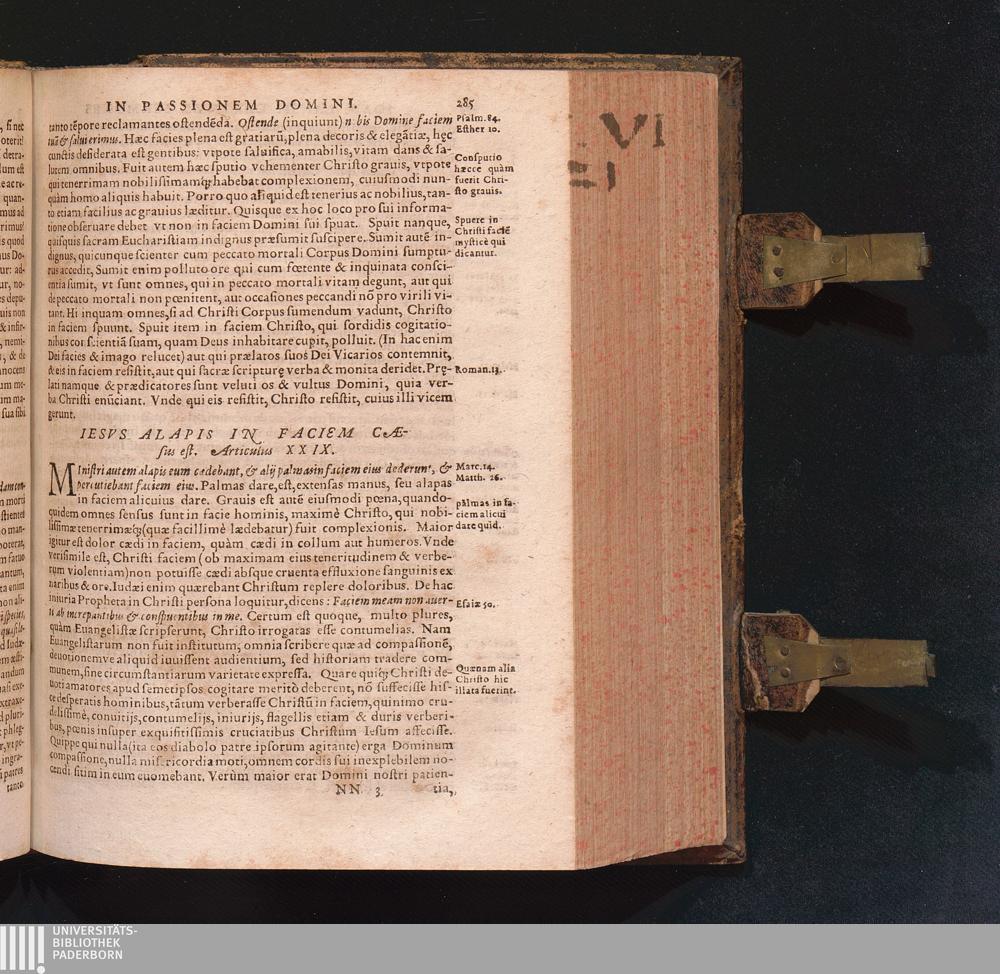 IN PASSIONEM DOMINI. 285
tanto tẽpore reclamantes ostendẽdã. Ostende (inquiunt) n bis Domine faciem
tuã & salui erimus. Hæc facies plena est gratiarũ, plena decoris & elegãtiæ, hęc
cunctis desiderata est gentibus: vtpote saluifica, amabilis, vitam dans & sa-
lutem omnibus. Fuit autem hæc sputio vehementer Christo grauis, vtpote
qui tenerrimam nobilissimamq́; habebat complexionem, cuiusmodi nun-
quàm homo aliquis habuit. Porro quo aliquid est tenerius ac nobilius, tan-
to etiam facilius ac grauius læditur. Quisque ex hoc loco pro sui informa-
tione obseruare debet vt non in faciem Domini sui spuat. Spuit nanque,
quisquis sacram Eucharistiam indignus præsumit suscipere. Sumit autẽ in-
dignus, quicunque scienter cum peccato mortali Corpus Domini sumptu-
rus accedit, Sumit enim polluto ore qui cum fœtente & inquinata consci-
entia sumit, vt sunt omnes, qui in peccato mortali vitam degunt, aut qui
de peccato mortali non pœnitent, aut occasiones peccandi nõ pro virili vi-
tant. Hi inquam omnes, si ad Christi Corpus sumendum vadunt, Christo
in faciem spuunt. Spuit item in faciem Christo, qui sordidis cogitatio-
nibus conscientiã suam, quam Deus inhabitare cupit, polluit. (In hac enim
Dei facies & imago relucet) aut qui prælatos suos Dei Vicarios contemnit,
& eis in faciem resistit, aut qui sacræ scripturę verba & monita deridet. Prę-
lati namque & prædicatores sunt veluti os & vultus Domini, quia ver-
ba Christi enũciant. Vnde qui eis resistit, Christo resistit, cuius illi vicem
gerunt.
Psalm. 84.
Esther 10.
Consputio
hæcce quàm
fuerit Chri-
sto grauis.
Spuere in
Christi faciẽ
mysticè qui
dicantur.
Roman. 13.
IESVS ALAPIS IN FACIEM CÆ-
sus est. Articulus XXIX.
MInistri autem alapis eum cædebant, & alij palmas in faciem eius dederunt, &
percutiebant faciem eius. Palmas dare, est, extensas manus, seu alapas
in faciem alicuius dare. Grauis est autẽ eiusmodi pœna, quando-
quidem omnes sensus sunt in facie hominis, maximè Christo, qui nobi-
lissimæ tenerrimæq́; (quæ facillimè lædebatur) fuit complexionis. Maior
igitur est dolor cædi in faciem, quàm cædi in collum aut humeros. Vnde
verisimile est, Christi faciem (ob maximam eius teneritudinem & verbe-
rum violentiam) non potuisse cædi absque cruenta effluxione sanguinis ex
naribus & ore. Iudæi enim quærebant Christum replere doloribus. De hac
iniuria Propheta in Christi persona loquitur, dicens: Faciem meam non auer-
ti ab increpantibus & conspuentibus in me. Certum est quoque, multo plures,
quàm Euangelistæ scripserunt, Christo irrogatas esse contumelias. Nam
Euangelistarum non fuit institutum, omnia scribere quæ ad compassionẽ,
deuotionemve aliquid iuuissent audientium, sed historiam tradere com-
munem, sine circumstantiarum varietate expressa. Quare quiq́; Christi de-
uoti amatores apud semetipsos cogitare meritò deberent, nõ suffecisse his-
ce desperatis hominibus, tãtum verberasse Christũ in faciem, quinimo cru-
delissimè, conuitijs, contumelijs, iniurijs, flagellis etiam & duris verberi-
bus, pœnis insuper exquisitissimis cruciatibus Christum Iesum affecisse.
Quippe qui nulla (ita eos diabolo patre ipsorum agitante) erga Dominum
compassione, nulla misericordia moti, omnem cordis sui inexplebilem no-
cendi sitim in eum euomebant. Verùm maior erat Domini nostri patien-
NN 3. tia,
Marc. 14.
Matth. 26.
palmas in fa-
ciem alicui
dare quid.
Esaiæ 50.
Quænam alia
Christo hic
illata fuerint.
VI
UNIVERSITÄTS-
BIBLIOTHEK
PADERBORN